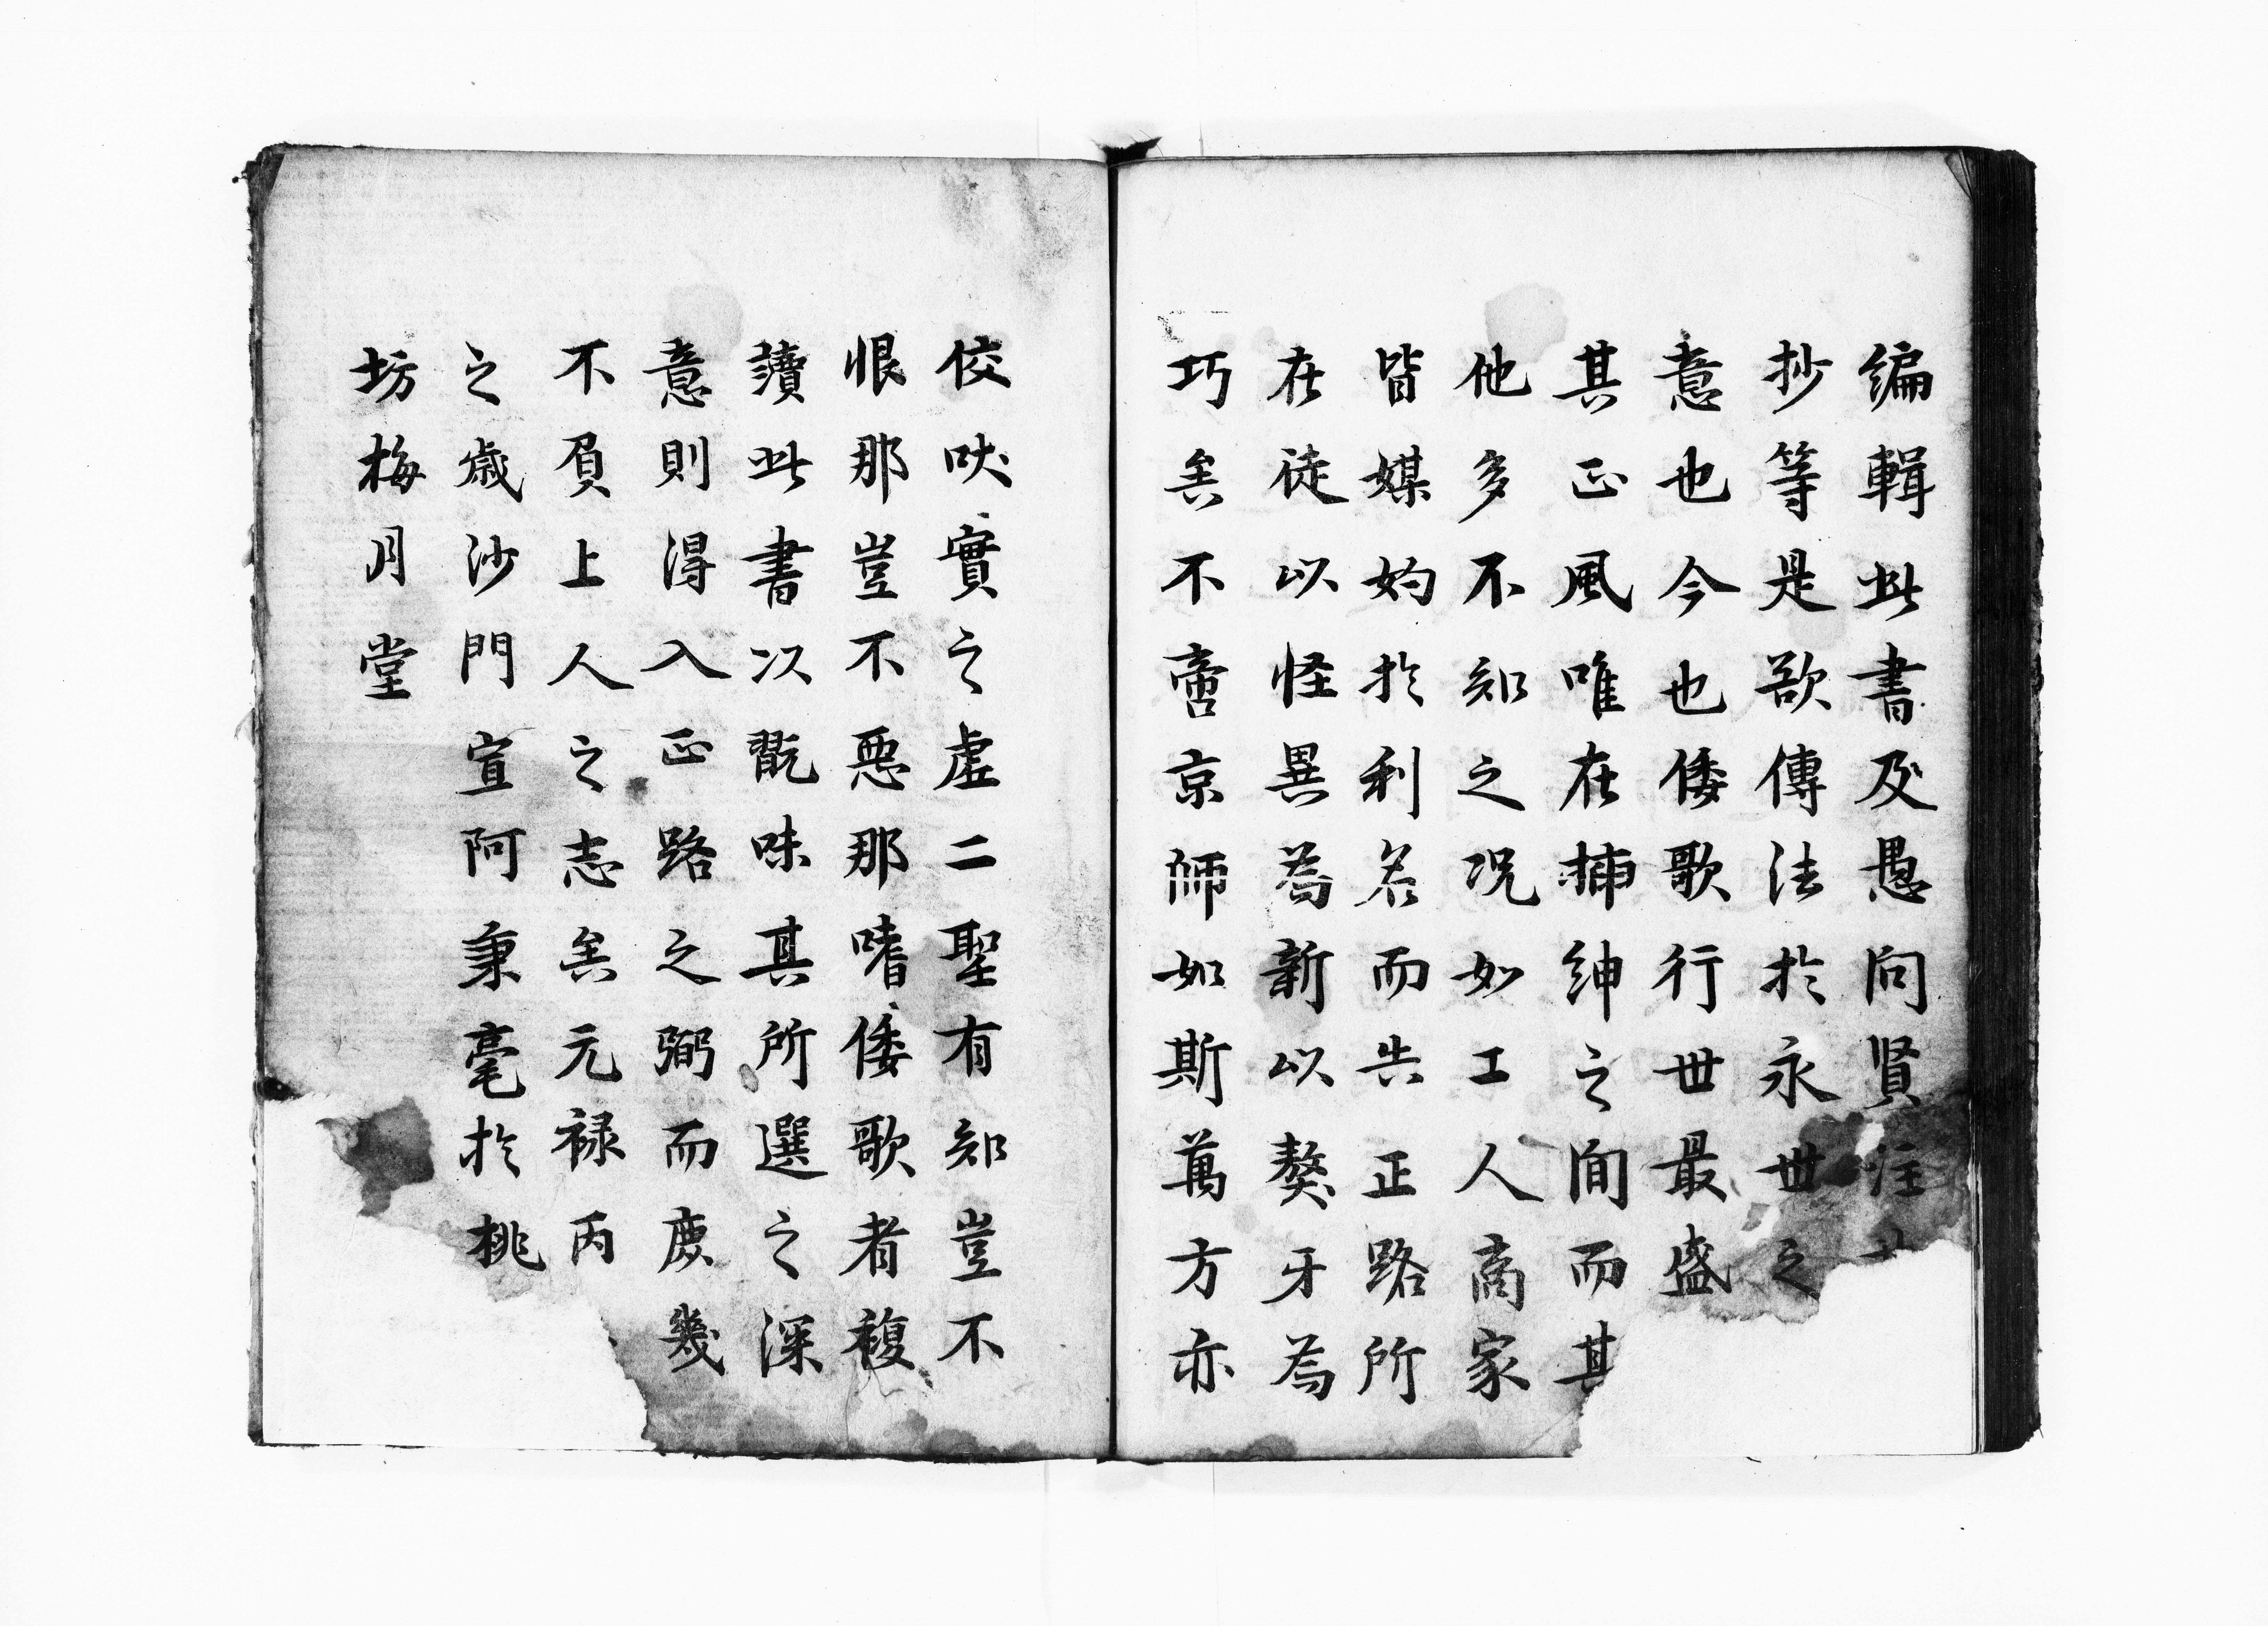 編輯此書及愚問賢注
抄等是欲傳法於永世之
意也今也倭歌行世最盛
其正風唯在搢紳之間而其
他多不知之况如工人商家
皆媒妁於利名而告正路所
在徒以怪異為新以獒牙為
巧矣不啻京師如斯萬方亦
佼吠實之虚二聖有知豈不
恨那豈不惡那嗜倭歌者複
讀此書以翫味其所選之深
意則得入正路之弼而庶幾
不負上人之志矣元禄丙
之歳沙門宣阿秉毫於桃
坊梅月堂